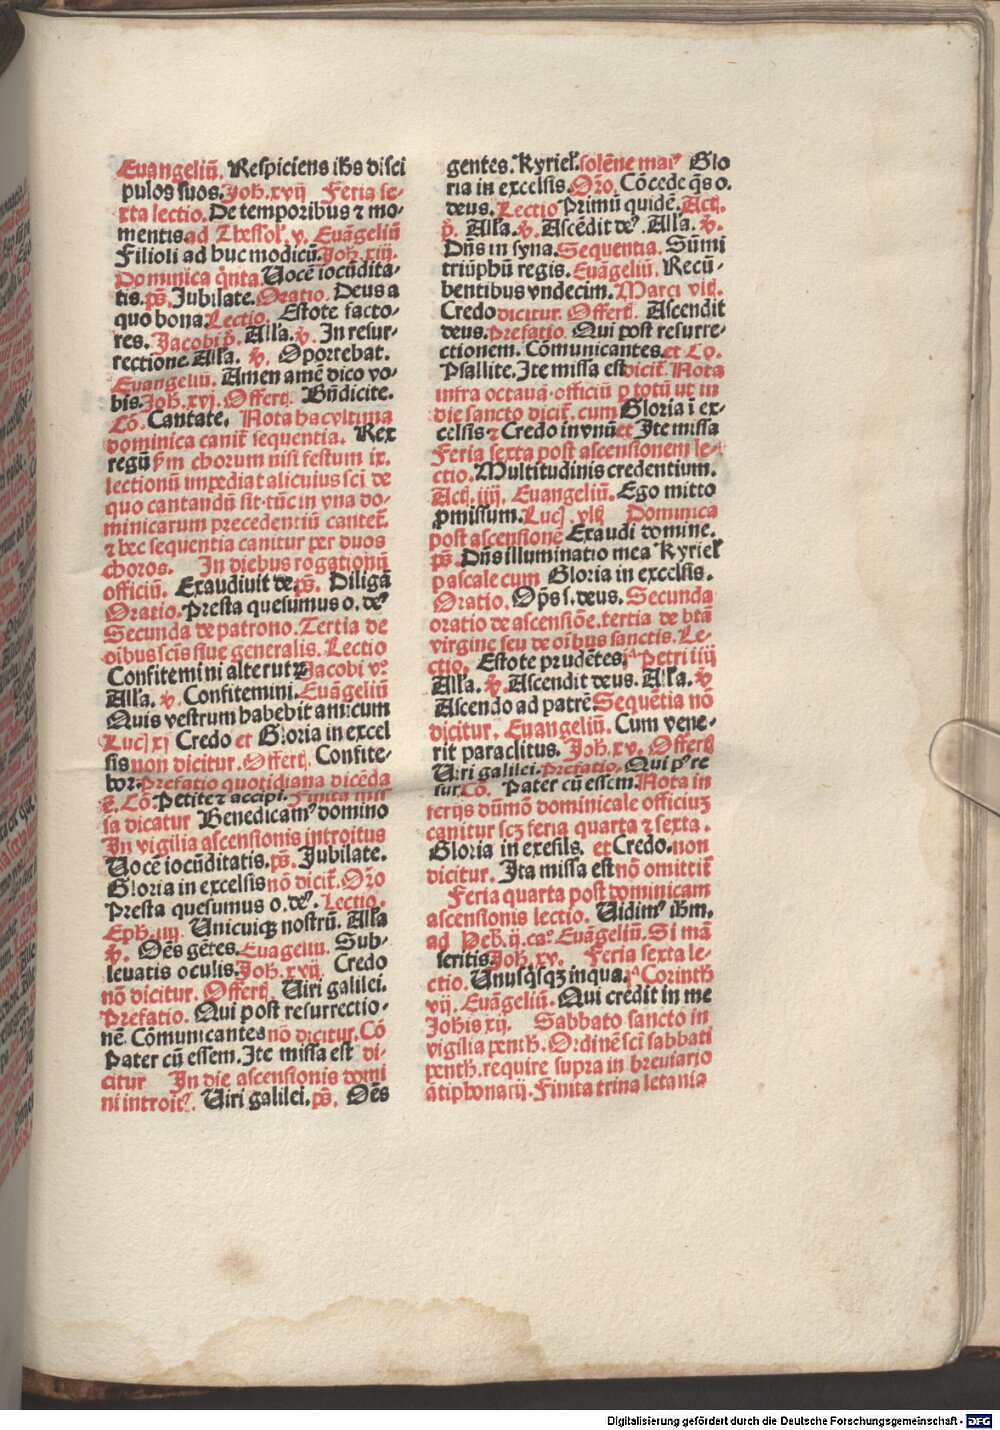 Euangeliū. Respiciens ihs disci
pulos suos. Joh. xvij Feria se-
xta lectio. De temporibus ⁊ mo-
mentis ad Thessol. v. Euāgeliū
Filioli ad huc modicū. Joh. xiij.
Dominica q̄nta. Uocē iocūdita-
tis. ps̄. Jubilate. Oratio. Deus a
quo bona. Lectio. Estote facto-
res. Jacobi p̄. Alla. ꝟ. In resur-
rectione. Alla. ꝟ. Oportebat.
Euangeliū. Amen amē dico vo-
bis. Joh. xvj. Offert̄. Bn̄dicite.
Cō. Cantate. Nota hac vltima
dominica canit̄ sequentia. Rex
regū p̄m chorum nisi festum ix.
lectionū impediat alicuius sci de
quo cantandū sit. tūc in vna do-
minicarum precedentiū cantet̄.
⁊ hec sequentia canitur per duos
choros. In diebus rogationū
officiū. Exaudiuit de. ps̄. Diligā
Oratio. Presta quesumus o. de⁹
Secunda de patrono. Tertia de
oībus scīs siue generalis. Lectio
Confitemini alterutꝝ Jacobi v°
Alla. ꝟ. Confitemini. Euāgeliū
Quis vestrum habebit amicum
Luc̄ xj Credo et Gloria in excel
sis non dicitur. Offert̄. Confite-
bor. Prefatio quotidiana dicēda
ē. Cō. Petite ⁊ accipi. Finita mis
sa dicatur Benedicam⁹ domino
In vigilia ascensionis introitus
Uocē iocūditatis. ps̄. Jubilate.
Gloria in excelsis nō dicit̄. Or̄o
Presta quesumus o. de⁹. Lectio.
Eph. iiij. Unicuiqꝫ nostrū. Alla
ꝟ. Oēs gētes. Euageliū. Sub-
leuatis oculis. Joh. xvij Credo
nō dicitur. Offert̄ Uiri galilei.
Prefatio. Qui post resurrectio-
nē. Cōmunicantes nō dicitur. Cō
Pater cū essem. Ite missa est di-
citur In die ascensionis domi
ni introit⁹. Uiri galilei. ps̄. Oēs
gentes. Kyriel. solēne mai⁹ Glo
ria in excelsis. Or̄o. Cōcede q̄s o.
deus. Lectio Primū quidē. Act̄.
p̄. Alla. ꝟ. Ascēdit de⁹. Alla. ꝟ.
Dn̄s in syna. Sequentia. Sūmi
triūphū regis. Euāgeliū. Recū-
bentibus vndecim. Marci vlt̄.
Credo dicitur. Offert̄. Ascendit
deus. Prefatio. Qui post resurre-
ctionem. Cōmunicantes. et Co.
Psallite. Ite missa est dicit̄. Nota
infra octauā officiū p totū ut in
die sancto dicit̄. cum Gloria ī ex-
celsis ⁊ Credo in vnū et Ite missa
Feria sexta post ascensionem le-
ctio. Multitudinis credentium.
Act̄. iiij. Euangeliū. Ego mitto
ꝓmissum. Luc̄ . vlt̄ Dominica
post ascensionē Exaudi domine.
ps̄. Dn̄s illuminatio mea Kyriel
pascale cum Gloria in excelsis.
Oratio. Op̄s s. deus. Secunda
oratio de ascensiōe. tertia de btā
virgine seu de oībus sanctis. Le-
ctio. Estote prudētes. jᵃ Petri iiij
Alla. ꝟ. Ascendit deus. Alla. ꝟ
Ascendo ad patrē. Sequētia nō
dicitur. Euangeliū. Cum vene-
rit paraclitus. Joh. xv. Offert̄
Uiri galilei. Prefatio. Qui p⁹ re
sur. Cō. Pater cū essem. Nota in
ferijs dūmō dominicale officiuꝫ
canitur scꝫ feria quarta ⁊ sexta.
Gloria in exelsis. et Credo. non
dicitur. Ita missa est nō omittit̄
Feria quarta post dominicam
ascensionis lectio. Uidim⁹ ihm.
ad Heb. ij. ca° Euāgeliū. Si mā
seritis. Joh. xv. Feria sexta le-
ctio. Unusq̄sqꝫ inqua. jᵃ Corinth
vij. Euāgeliū. Qui credit in me
Johis xij. Sabbato sancto in
vigilia penth. Ordinē sci sabbati
penth. require supra in breuiario
ātiphonarij. Finita trina letania
Digitalisierung gefördert durch die Deutsche Forschungsgemeinschaft - DFG